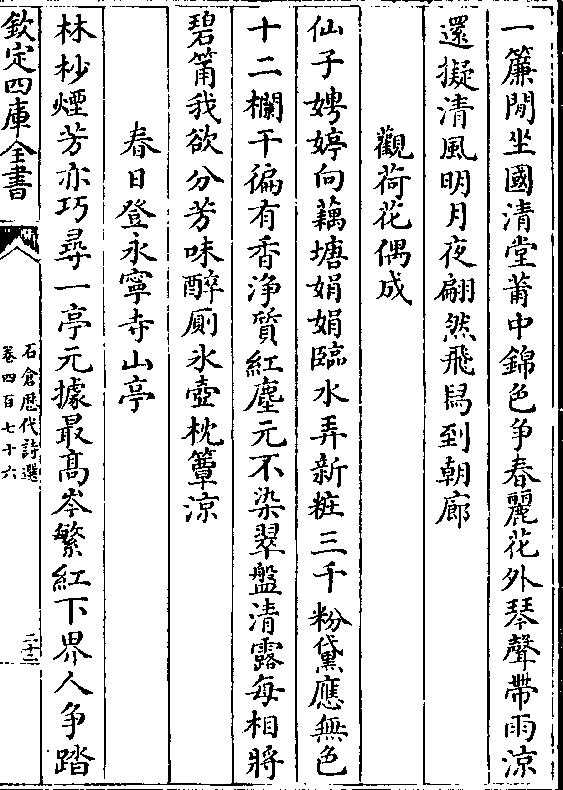 一簾閒坐國清堂莆中錦色争春麗花外琴聲帶雨涼
還擬清風明月夜翩然飛舄到朝廊
觀荷花偶成
仙子娉婷向藕塘娟娟臨水弄新粧三千粉黛應無色
十二欄干徧有香浄質紅塵元不染翠盤清露每相將
碧筩我欲分芳味醉厠氷壺枕簟涼
春日登永寧寺山亭
林杪煙芳亦巧尋一亭元據最髙岑繁紅下界人争踏
欽定四庫全書
石倉歴代詩選
卷四百七十六
二十二